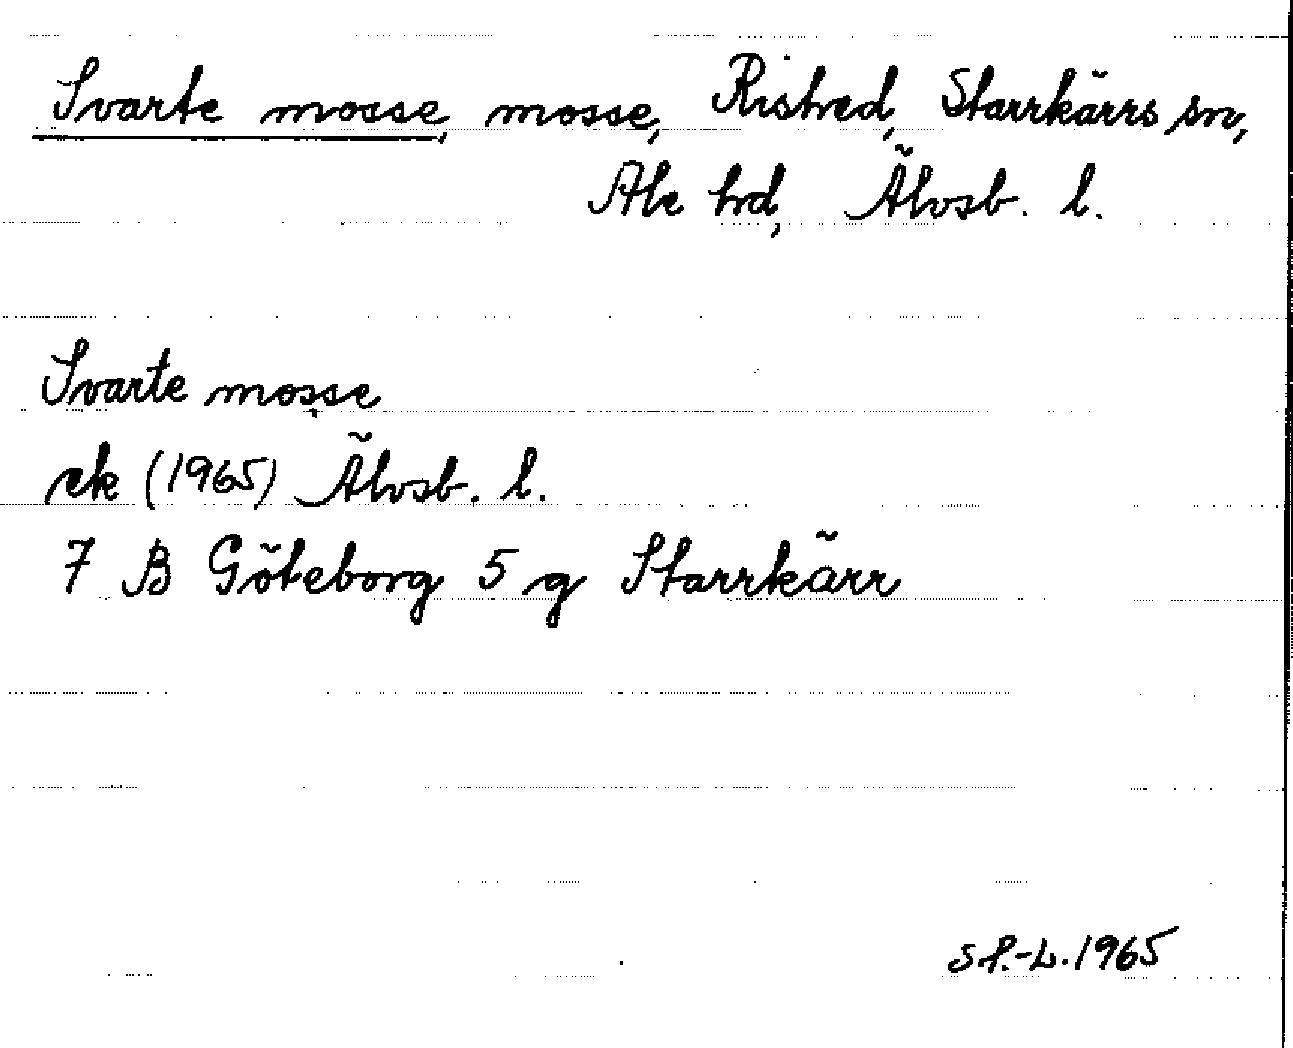 Svarte mosse, mosse, Ristred, Starrkärrs sn,
Ale hd, Älvsb. l.
Svarte mosse
ek (1965) Älvsb. l.
7 B Göteborg 5 g Starrkärr
1965